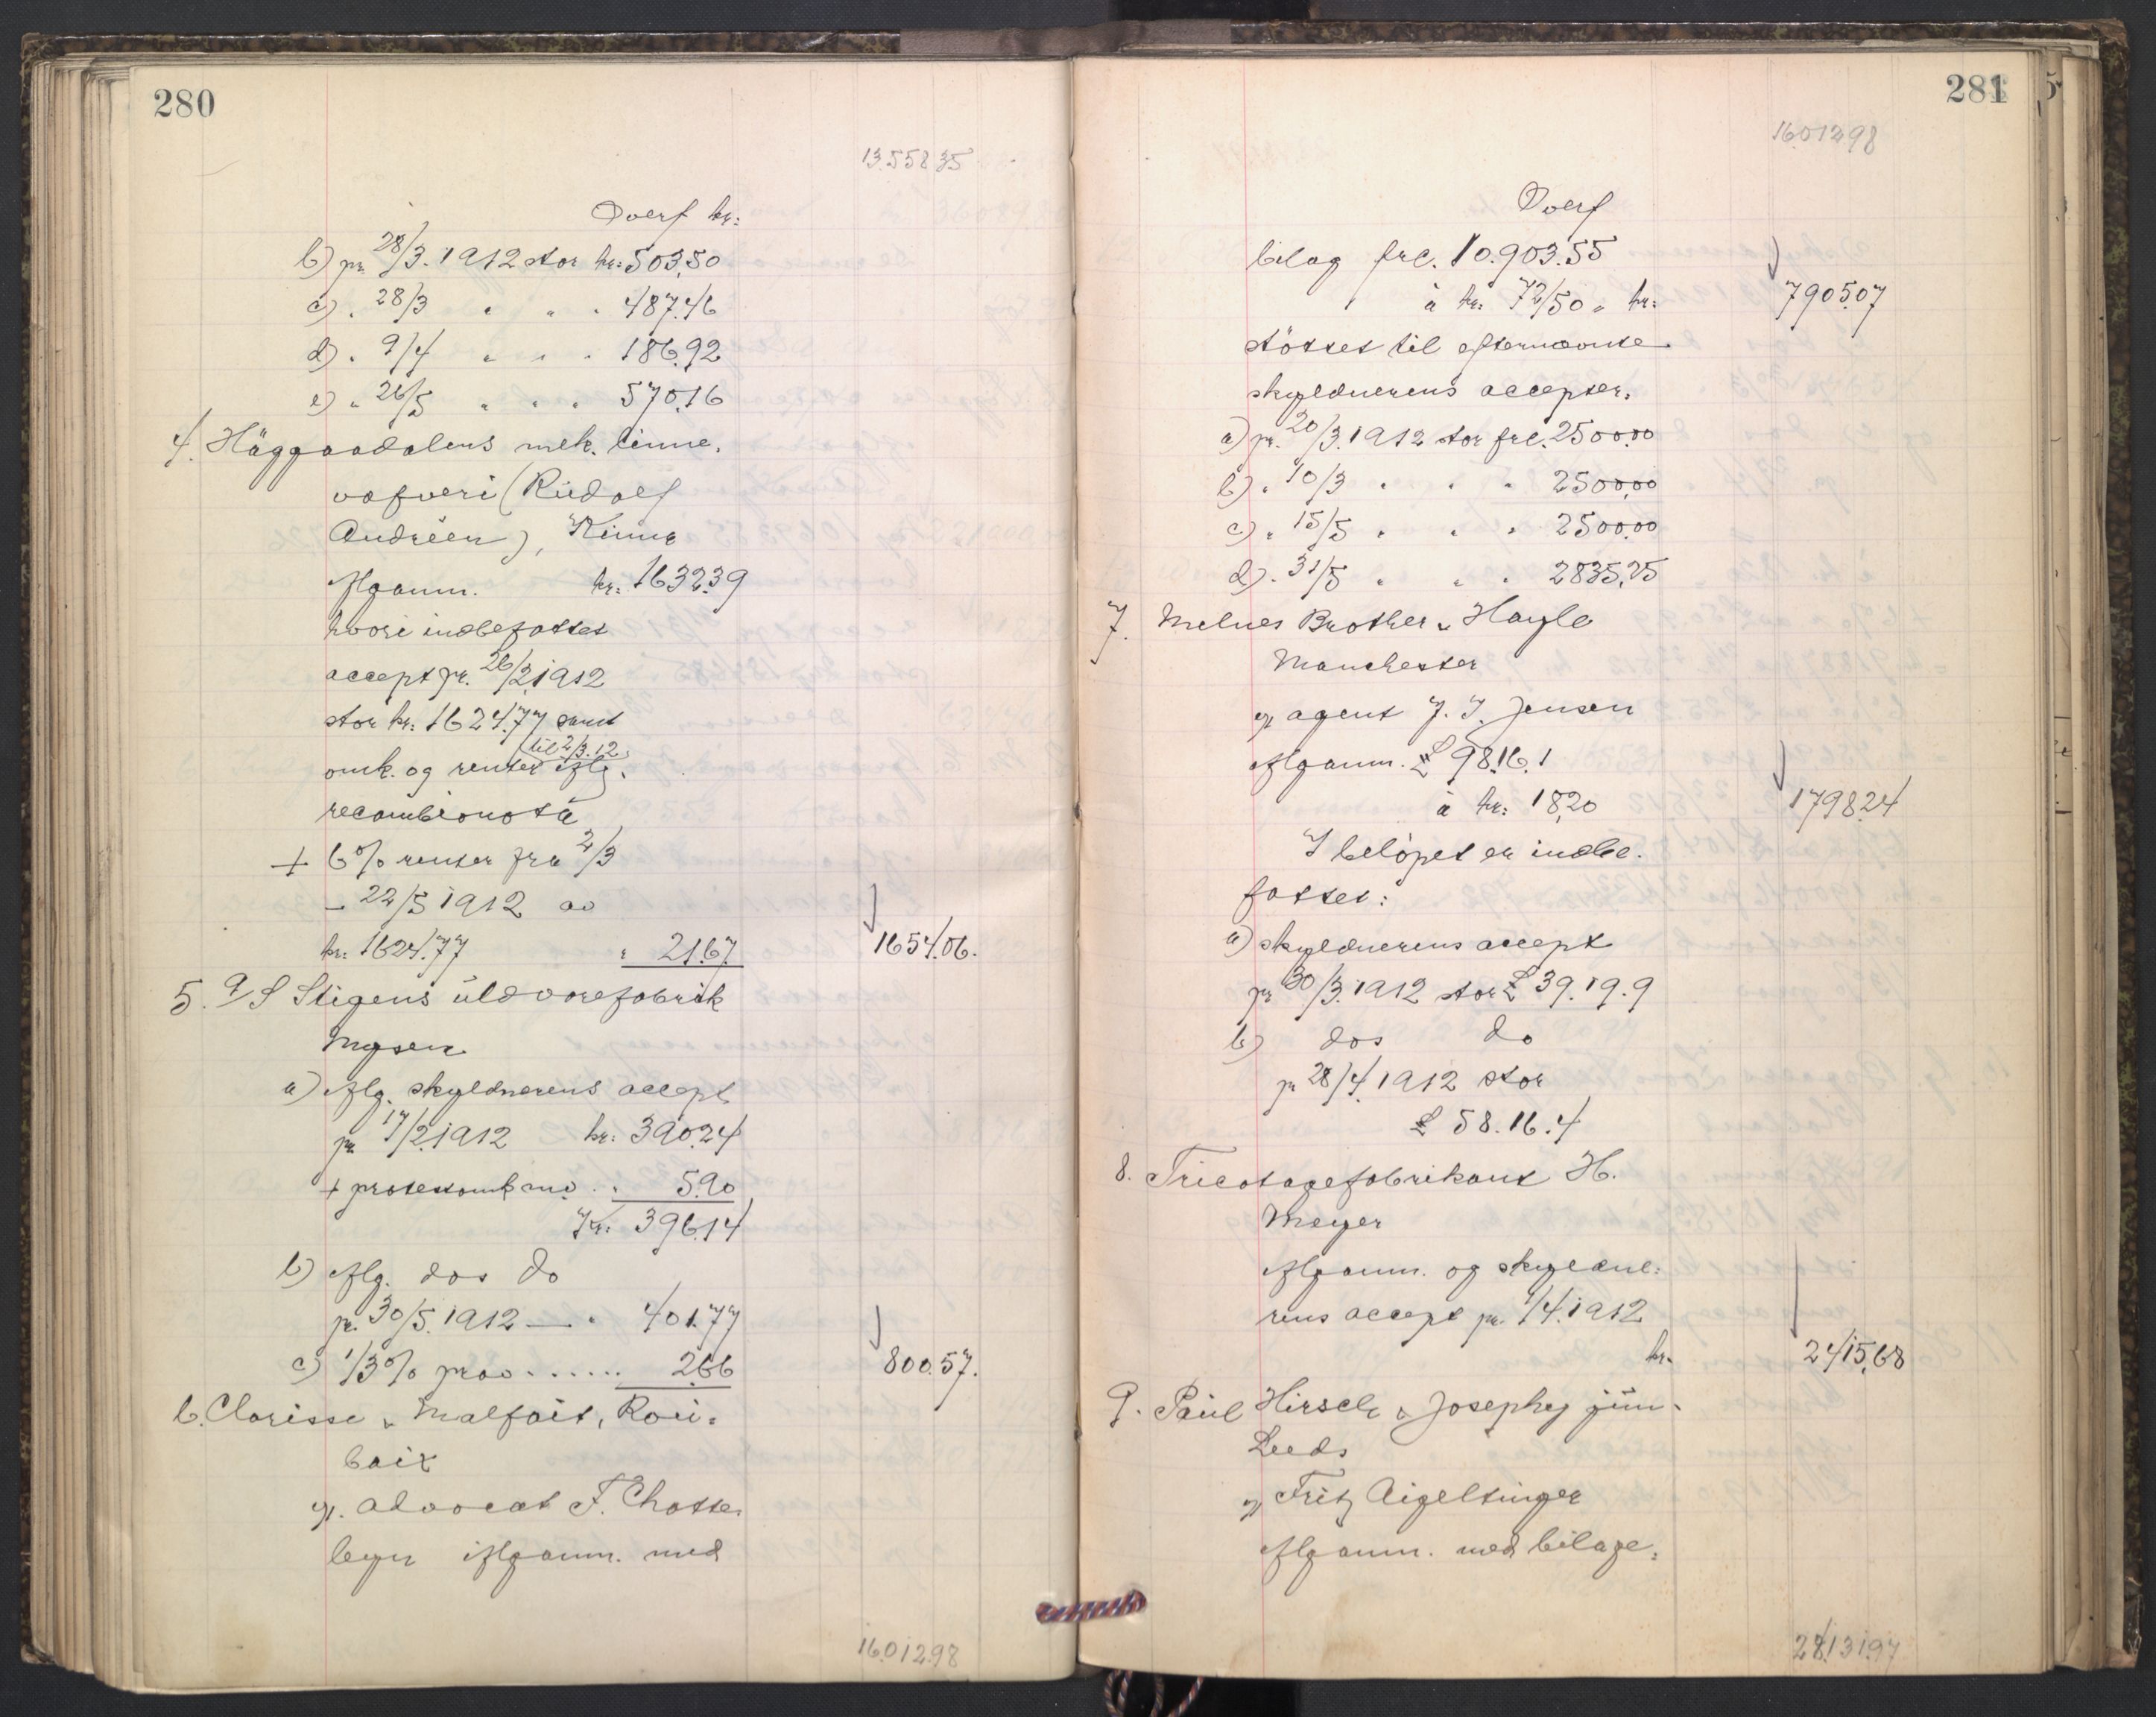 280
13.558 35
Overf kr:
b) pr. 28/3. 1912 stor kr: 503,50
c) " 28/3 " " " 487.46
d) " 9/4 " " " 186.92
e) " 26/5 " " " 570.16
4. Häggaadalens mek. linne-
vafveri (Rudolf
Andréen), Kinna
iflg anm. kr: 1632.39
hvori indbefattet
accept pr. 26/2 1912
stor kr: 1624.77 samt
til 2/3.12
omk. og renter iflg.
recambionota
+ 6% renter fra 2/3
– 22/5 1912 av
kr: 1624.77 " 21.67
1654.06.
5. A/S Stigens uldvarefabrik
Mysen
a) iflg. skyldnerens accept
pr 17/2 1912 kr: 390.24
+ protestomk m.v. " 5.90
Kr: 396.14
b) iflg. dos do
pr. 30/5. 1912 — " 401.77
c) 1/3% prov. ..... 2.66
800.57.
6. Clarisse & Malfait, Rou-
baix
v. advocat F. Chatte-
leyn iflg anm. med
16.012.98
281
16.012.98
Overf
bilag frc. 10.903.55
à kr: 72/50 " kr:
7905.07
støttet til efternævnte
skyldnerens accepter.
a) pr. 20/3. 1912 stor frc. 2500.00
b) " 10/3 " " " 2500,00
c) " 15/5 " " " 2500.00
d) " 31/5 " " " 2835,25
7. Melnes Brother & Hayle
Manchester
v/ agent J. J. Jensen
iflg anm. £ 98.16.1
à kr: 18,20
1798.24
I beløpet er indbe-
fattet:
a) skyldnerens accept
pr 30/3. 1912 stor £ 39.19.9
b) dos do
pr 28/4 1912 stor
£ 58.16.4
8. Tricotagefabrikant H.
Meyer
iflg anm. og skyldne-
rens accept pr. 1/4. 1912
kr.
2415,68
9. Paul Hirsch & Josephy jun.
Leeds
v/ Fritz Aigeltinger
iflg anm. med bilage.
28.131.97